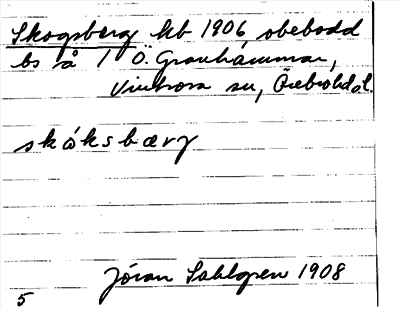 Skogsberg hb 1906, obebodd
bs å 1 Ö. Granhammar,
Vintrosa sn, Örebro hd ol.
skåksbærj
Jöran Sahlgren 1908
5